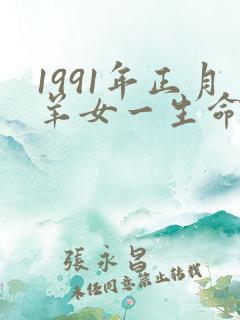 1991年正月
羊女一生命
張永昌
未经同意禁止转载